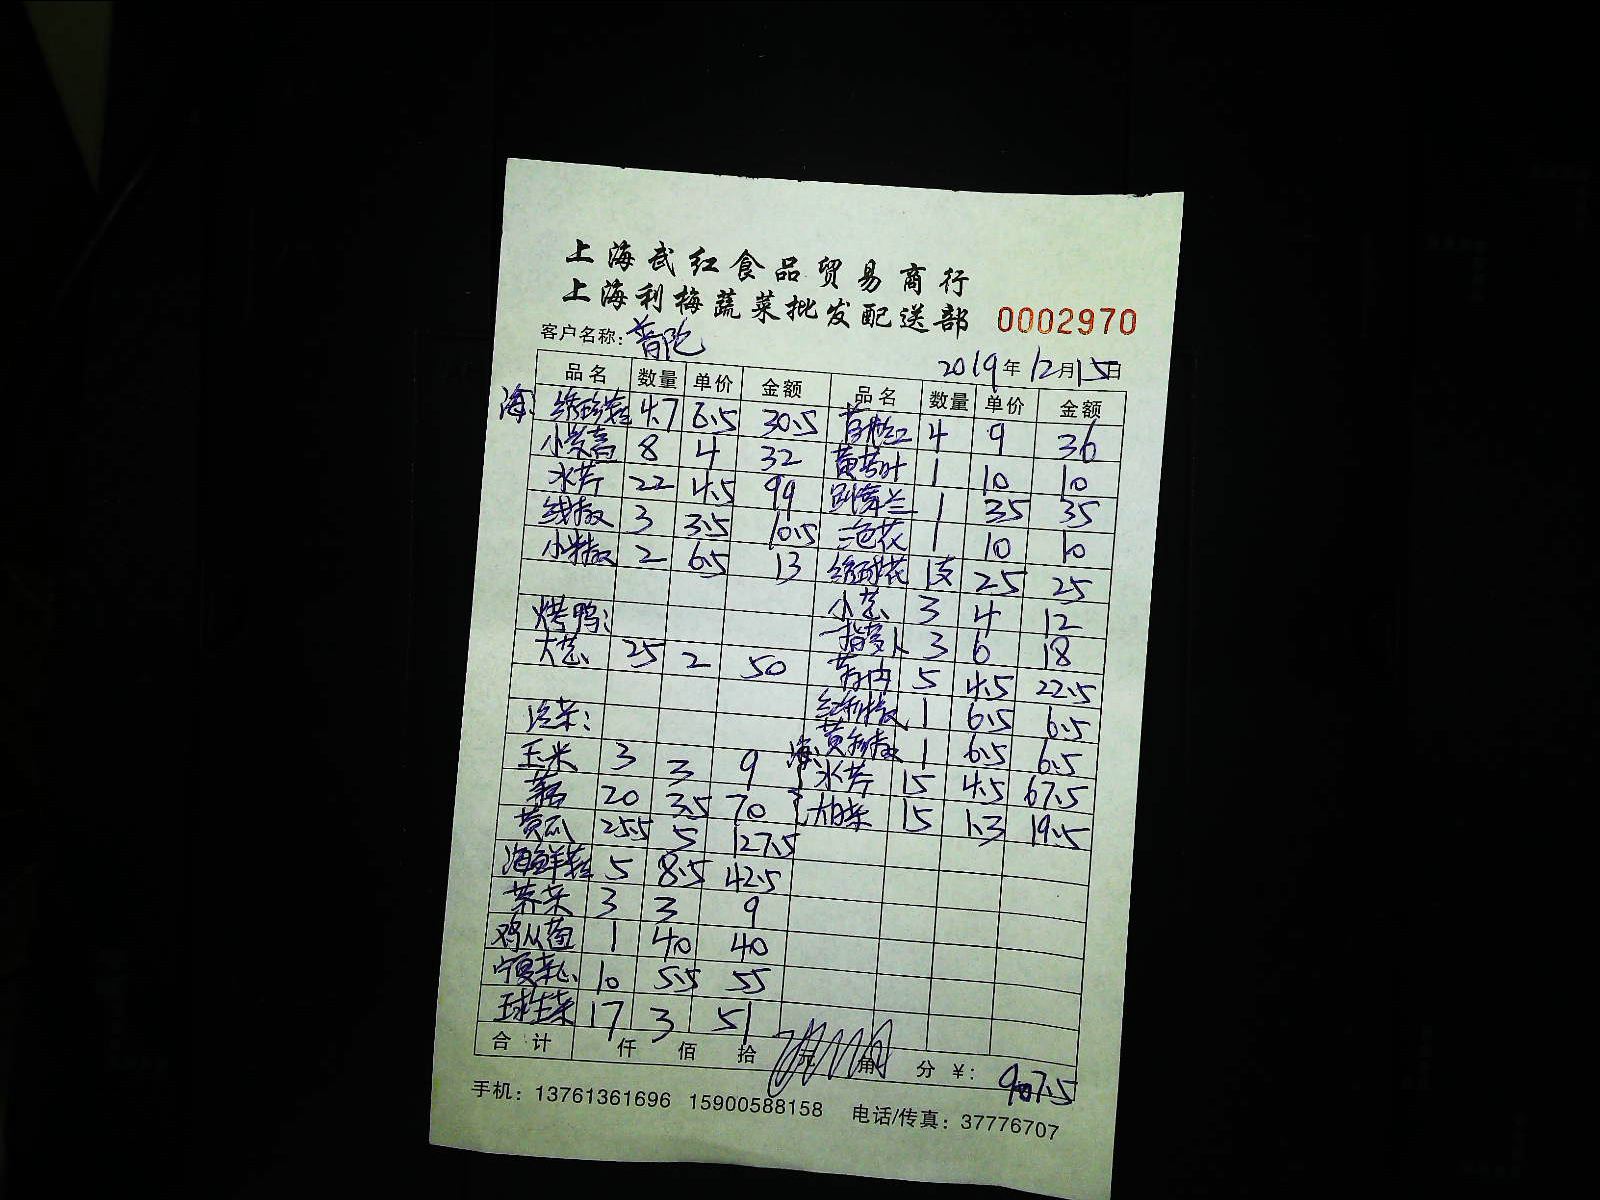 上海武红食品贸易商行
上海利梅蔬菜批发配送部 0002970
客户名称：普陀
2019年12月15日
品名 数量 单价 金额 品名 数量 单价 金额
海: 4.7 6.5 30.5 4 9 36
小茼蒿 8 4 32 1 10 10
水芹 22 4.5 99 跳舞兰 1 35 35
线椒 3 3.5 10.5 1 10 10
小米椒 2 6.5 13 绣球花 1支 25 25
小葱 3 4 12
烤鸭: 3 6 18
大葱 25 2 50 5 4.5 22.5
红彩椒 1 6.5 6.5
冷菜: 黄彩椒 1 6.5 6.5
玉米 3 3 9 海: 水芹 15 4.5 67.5
20 3.5 70 大白菜 15 1.3 19.5
黄瓜 25.5 5 127.5
海鲜菇 5 8.5 42.5
荠菜 3 3 9
鸡从菌 1 40 40
宁夏菜心 10 5.5 55
球生菜 17 3 51
合计 仟 佰 拾 元 角 分 ¥: 907.5
手机：13761361696 15900588158 电话/传真：37776707